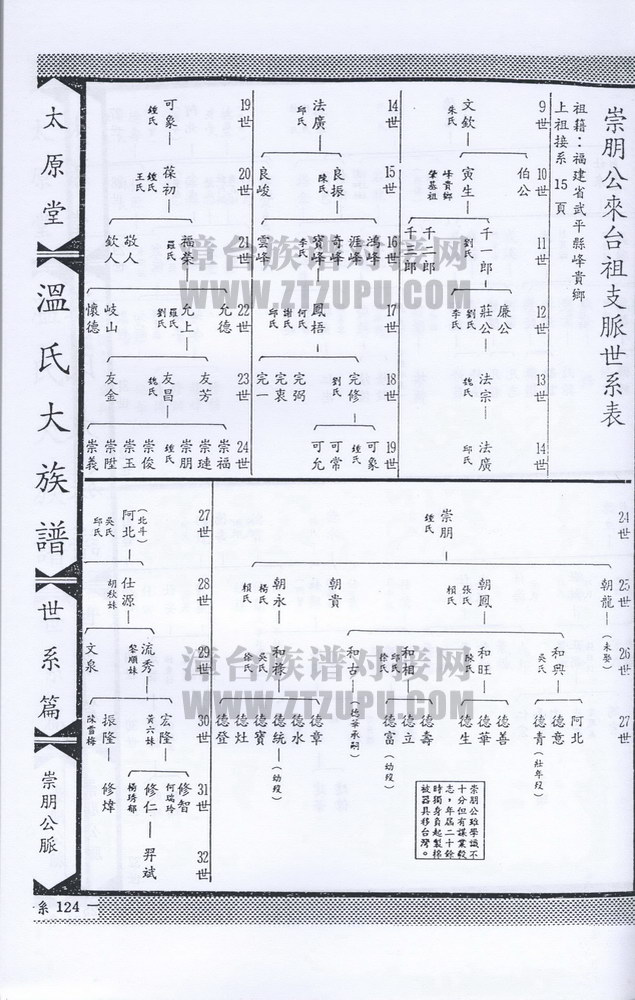 崇朋公來台祖支脈世系表
祖籍：福建省武平縣峰貴鄉
上祖接系 15 頁
9世
文欽
朱氏
10世
伯公
寅生
峰貴鄉
肇基祖
11世
千一郎
劉氏
千二郎
千三郎
12世
廉公
莊公
劉氏
李氏
13世
法宗
魏氏
14世
法廣
邱氏
14世
法廣
邱氏
15世
良振
陳氏
良峻
16世
鴻峰
涯峰
奇峰
寶峰
李氏
雲峰
17世
鳳梧
何氏
謝氏
邱氏
18世
完修
劉氏
完弼
完衷
完一
19世
可象
鍾氏
可常
可允
19世
可象
鍾氏
20世
葆初
鍾氏
王氏
21世
福榮
羅氏
敬人
欽人
22世
允德
允上
羅氏
劉氏
岐山
懷德
23世
友芳
友昌
魏氏
友金
24世
崇福
崇璉
崇朋
鍾氏
崇俊
崇玉
崇陞
崇義
24世
崇朋
鍾氏
25世
朝龍
(未娶)
朝鳳
張氏
賴氏
朝貴
朝永
楊氏
賴氏
26世
和興
吳氏
和旺
陳氏
和祖
邱氏
徐氏
和古
(德華承嗣)
和祿
吳氏
徐氏
27世
阿北
德意
德青
(壯年歿)
德善
德華
德生
德壽
德立
德富
(幼歿)
德章
德水
德統
(幼歿)
德寶
德灶
德登
崇朋公雖學識不
十分但有謀業毅
志，年屆二十餘
時獨身負起製棉
被器具移台灣。
27世
(北斗)
阿北
吳氏
邱氏
28世
仕源
胡秋妹
29世
流秀
黎順妹
文泉
30世
宏隆
黃六妹
振隆
陳雪梅
31世
修智
何瑞玲
修仁
楊琇郁
修煒
32世
羿斌
太原堂
溫氏大族譜
世系篇
崇朋公脈
系 124
漳台族谱对接网
WWW.ZTZUPU.COM
漳台族谱对接网
WWW.ZTZUPU.COM